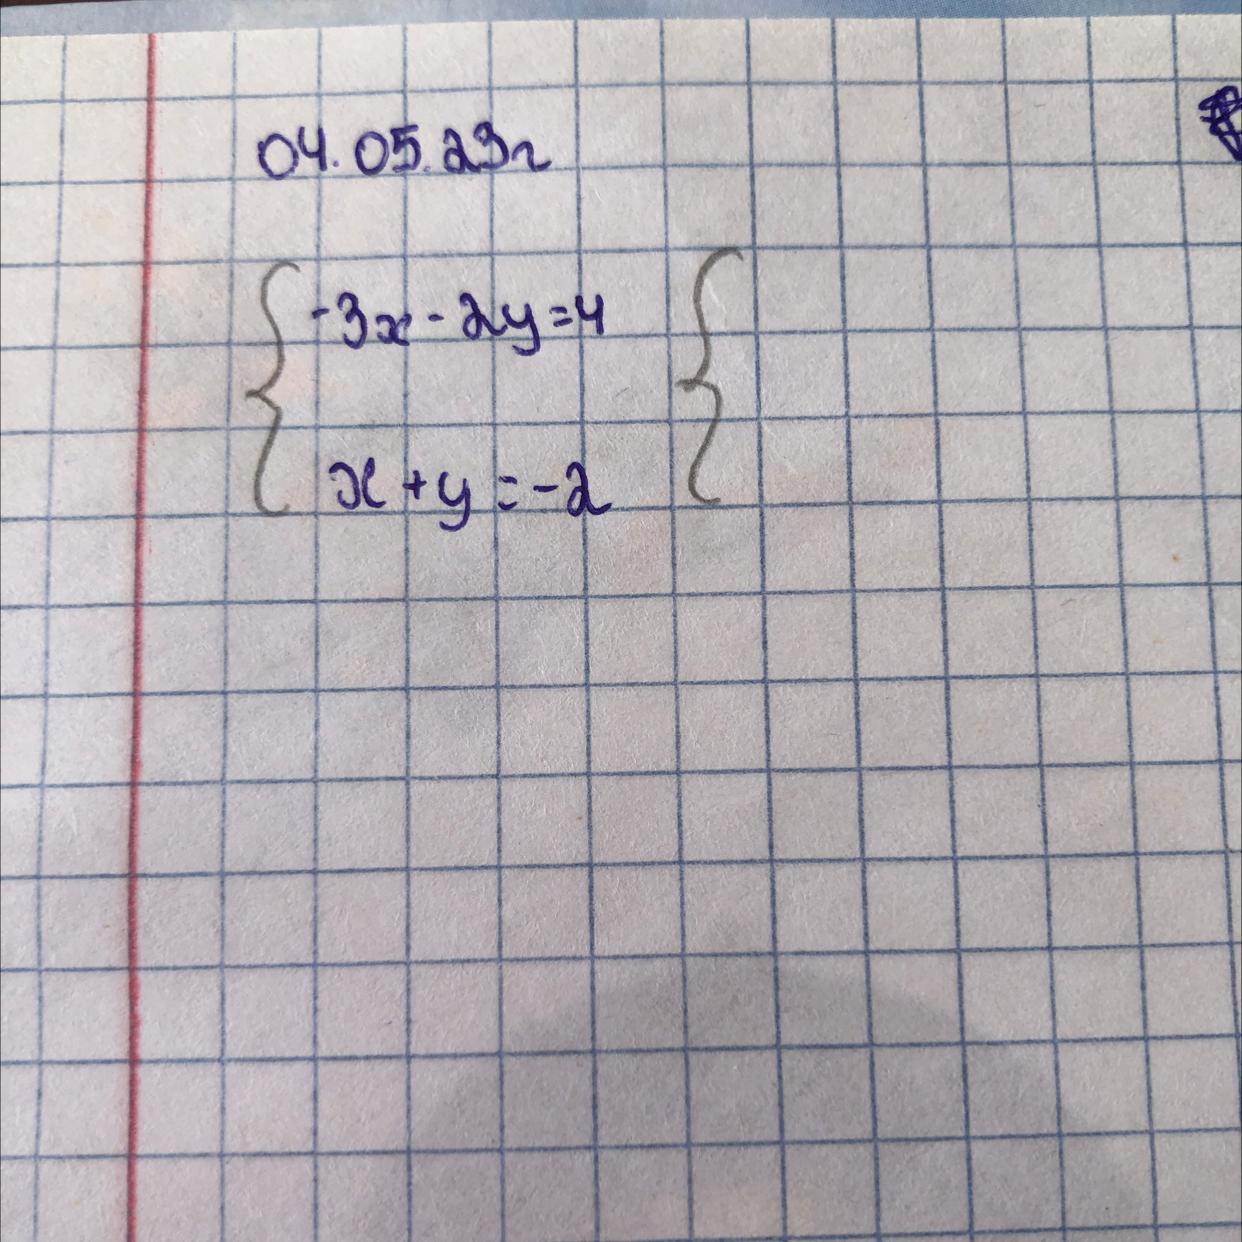 04.05.23г
-3x-2y=4
x+y=-2